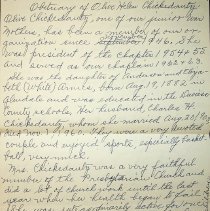 Obituary of Olive Helen Chickadautz
Olive Chickadautz, one of our junior War
Mothers, has been a member of our or-
ganization since 1946. She
was president of the chapter 1954 & 55
and served as our chaplain 1962 & 63.
She was the daughter of and
(White) Arnis, born Aug 19, 1892 in
and was educated in the
County schools. Her husband, Charles H.
Chickadautz whom she married Aug 20,
Nov 1, 1960. They was a very devoted
couple and enjoyed sports, especially basket-
ball, very much.
Mrs Chickadautz was a very faithful
member of the Presbyterian Church and
did a lot of church work until the last
year when her health began to
She was